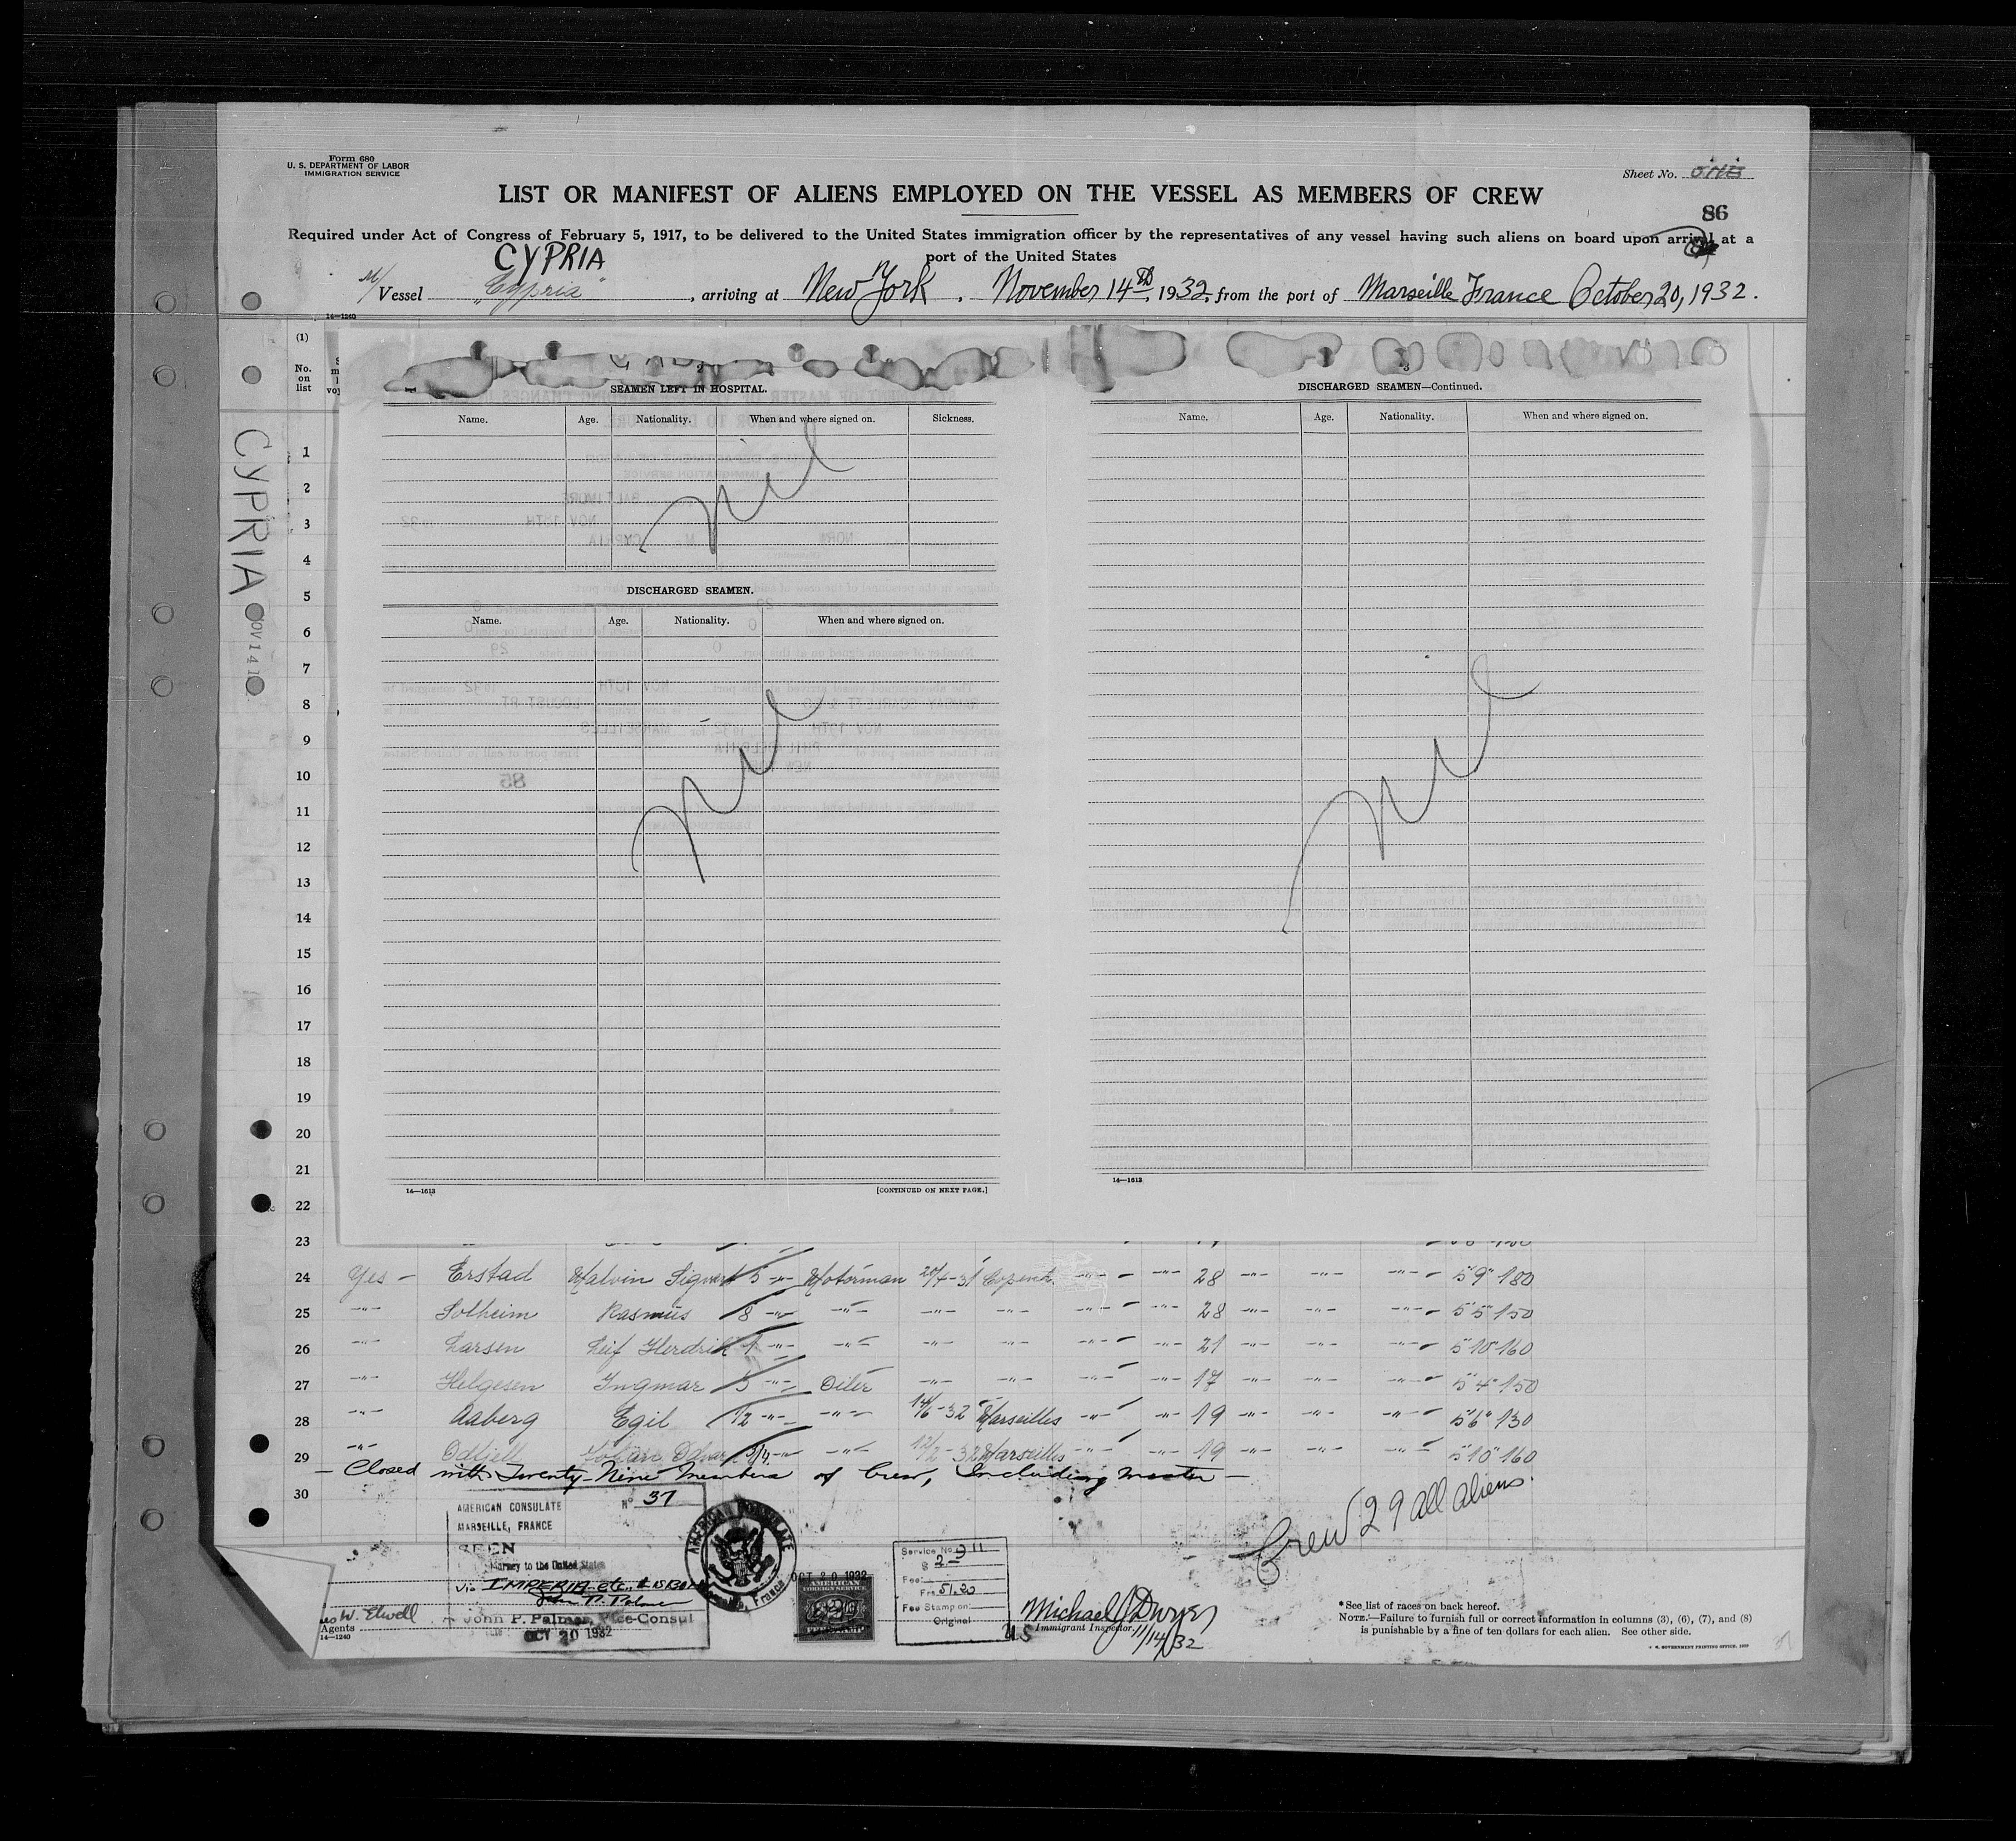 Form 680
U. S. DEPARTMENT OF LABOR
IMMIGRATION SERVICE
Sheet No.
LIST OR MANIFEST OF ALIENS EMPLOYED ON THE VESSEL AS MEMBERS OF CREW
86
Required under Act of Congress of February 5, 1917, to be delivered to the United States immigration officer by the representatives of any vessel having such aliens on board upon arrival at a
port of the United States
CYPRIA
M/Vessel "Cypria", arriving at New York, November 14th, 1932, from the port of Marseille France October 20, 1932.
14—1240
(1)
No. on list
CYPRIA
SEAMEN LEFT IN HOSPITAL.
Name. Age. Nationality. When and where signed on. Sickness.
nil
DISCHARGED SEAMEN.
Name. Age. Nationality. When and where signed on.
nil
14—1613
[CONTINUED ON NEXT PAGE.]
DISCHARGED SEAMEN—Continued.
Name. Age. Nationality. When and where signed on.
nil
14—1613
1
2
3
4
5
6
7
8
9
10
11
12
13
14
15
16
17
18
19
20
21
22
23
24 Yes – Erstad Malvin Sigurd 5 -"- Motorman 20/4-31 -"- -"- 28 -"- -"- -"- 5'9" 180
25 -"- Solheim Rasmus 8 -"- -"- -"- -"- -"- -"- 28 -"- -"- -"- 5'5" 150
26 -"- Larsen Leif -"- -"- -"- -"- -"- -"- 21 -"- -"- -"- 5'10" 160
27 -"- Helgesen Ingmar 3 -"- Oiler -"- -"- -"- -"- 17 -"- -"- -"- 5'4" 150
28 -"- Aaberg Egil 1/2 -"- -"- 14/6-32 Marseilles -"- -"- 19 -"- -"- -"- 5'6" 130
29 -"- Odfjell -"- -"- 12/2-32 Marseilles -"- -"- 19 -"- -"- -"- 5'10" 160
– Closed with Twenty-Nine Members of Crew, Including Master –
30
Crew 29 all aliens
AMERICAN CONSULATE
No 37
MARSEILLE, FRANCE
SEEN
Journey to the United States
Via IMPERIA etc.
John P. Palmer
John P. Palmer, Vice-Consul
OCT 20 1932
AMERICAN CONSULATE
Marseille, France
OCT 20 1932
AMERICAN
FOREIGN SERVICE
Service No. 911
$ 2–
Fee:
Frs 51.20
Fee Stamp on:
Original
W. Elwell
Agents
14—1240
Michael J Dwyer
US Immigrant Inspector.
11/14/32
*See list of races on back hereof.
NOTE.—Failure to furnish full or correct information in columns (3), (6), (7), and (8)
is punishable by a fine of ten dollars for each alien. See other side.